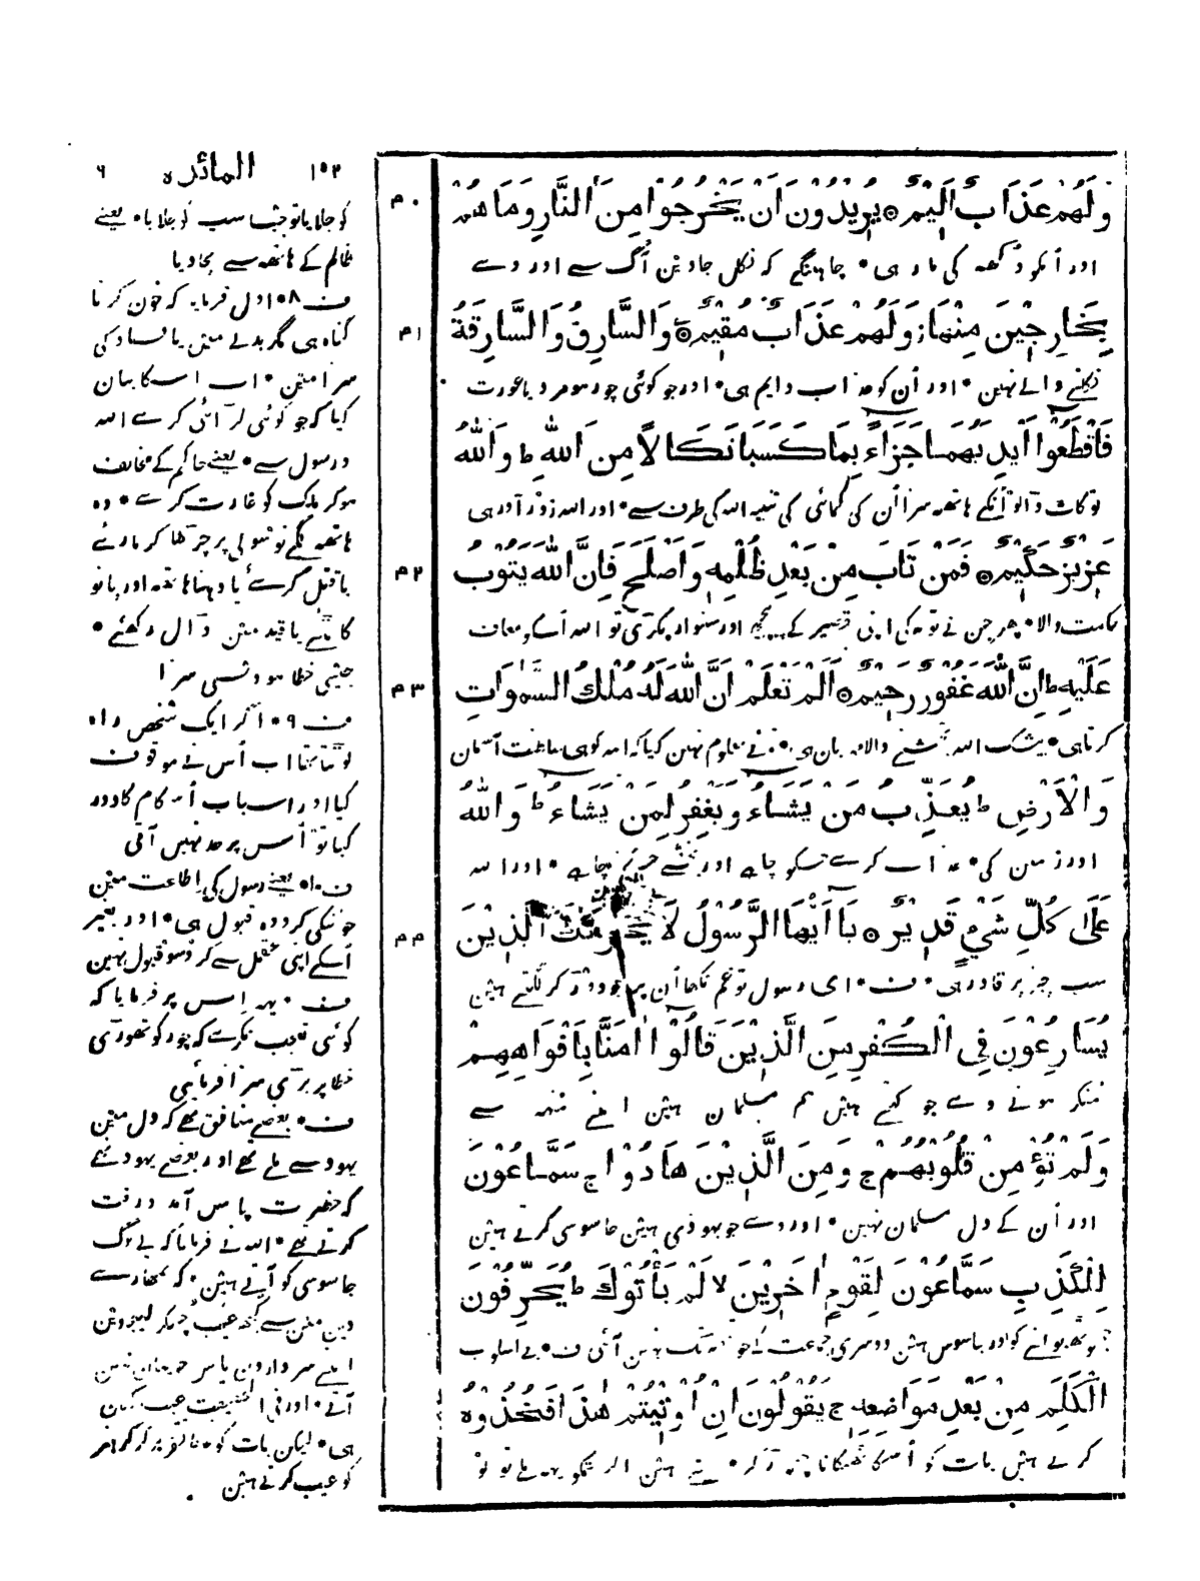 ١٥٢ المائدہ ٦
وَلَهُمْ عَذَابٌ أَلِيمٌ ۞ يُرِيدُونَ أَنْ يَخْرُجُوا مِنَ النَّارِ وَمَا هُمْ
اور اُنکو دُکھہ کی مار ہی • چاہینگے کہ نکل جاوین آگ سے اور وے
بِخَارِجِينَ مِنْهَا ز وَلَهُمْ عَذَابٌ مُقِيمٌ ۞ وَالسَّارِقُ وَالسَّارِقَةُ
نکلنے والے نہین • اور اُن کو عذاب دایم ہی • اور جو کوئی چور ہو مرد یا عورت
فَاقْطَعُوا أَيْدِيَهُمَا جَزَاءً بِمَا كَسَبَا نَكَالًا مِنَ اللهِ ط وَاللهُ
تو کاٹ ڈالو اُنکے ہاتھہ سزا اُن کی کمائی کی تنبیہ اللہ کی طرف سے • اور اللہ زور آور ہی
عَزِيزٌ حَكِيمٌ ۞ فَمَنْ تَابَ مِنْ بَعْدِ ظُلْمِهِ وَأَصْلَحَ فَإِنَّ اللهَ يَتُوبُ
حکمت والا • پھر جن نے توبہ کی اپنی تقصیر کے پیچھے اور سنوار پکڑی تو اللہ اُسکو معاف
عَلَيْهِ ط إِنَّ اللهَ غَفُورٌ رَحِيمٌ ۞ أَلَمْ تَعْلَمْ أَنَّ اللهَ لَهُ مُلْكُ السَّمٰوَاتِ
کرتا ہی • بیشک اللہ بخشنے والا مہربان ہی • تونے معلوم نہین کیا کہ اللہ کو ہی سلطنت آسمان
وَالْأَرْضِ ط يُعَذِّبُ مَنْ يَشَاءُ وَيَغْفِرُ لِمَنْ يَشَاءُ ط وَاللهُ
اور زمین کی • عذاب کرے جسکو چاہے اور بخشے جسکو چاہے • اور اللہ
عَلَىٰ كُلِّ شَيْءٍ قَدِيرٌ ۞ يَا أَيُّهَا الرَّسُولُ لَا يَحْزُنْكَ الَّذِينَ
سب چیز پر قادر ہی • ف • ای رسول تو غم نکھا اُن پر جو دوڑ کر لگتے ہین
يُسَارِعُونَ فِي الْكُفْرِ مِنَ الَّذِينَ قَالُوا اٰمَنَّا بِأَفْوَاهِهِمْ
منکر ہونے وے جو کہتے ہین ہم مسلمان ہین اپنے منہہ سے
وَلَمْ تُؤْمِنْ قُلُوبُهُمْ ج وَمِنَ الَّذِينَ هَادُوا ج سَمَّاعُونَ
اور اُن کے دل مسلمان نہین • اور وے جو یہودی ہین جاسوسی کرتے ہین
لِلْكَذِبِ سَمَّاعُونَ لِقَوْمٍ اٰخَرِينَ لا لَمْ يَأْتُوكَ ط يُحَرِّفُونَ
جھوٹھہ بولنے کو اور جاسوس ہین دوسری جماعت کے جو تجھہ تک نہین آئی ف • بے اسلوب
الْكَلِمَ مِنْ بَعْدِ مَوَاضِعِهِ ج يَقُولُونَ إِنْ أُوتِيتُمْ هٰذَا فَخُذُوهُ
کرتے ہین بات کو اُسکا ٹھکانا چھوڑ کر • کہتے ہین اگر تمکو یہہ ملے تو لو
٤٠
٤١
٤٢
٤٣
٤٤
کو جلایا تو جیسا سب کو جلایا • یعنے
ظالم کے ہاتھہ سے بچا دیا
ف ٨ • اول فرمایا کہ خون کرنا
گناہ ہی مگر بدلے مین یا فساد کی
سزا مین • اب اسکا بیان
کیا کہ جو کوئی لڑائی کرے اللہ
و رسول سے • یعنے حاکم کے مخالف
ہوکر ملک کو غارت کرے • وہ
ہاتھہ لگے تو سولی پر چڑھا کر مارئے
یا قتل کرئے یا دہنا ہاتھہ اور پانو
کاٹئے یا قید مین ڈال رکھئے •
جیسی خطا ہو ویسی سزا
ف ٩ • اگر ایک شخص راہ
لوٹتا تھا اب اُس نے موقوف
کیا اور اسباب اُس کام کا دور
کیا تو اُس پر حد نہین آتی
ف ١٠ • یعنے رسول کی اطاعت مین
جو نیکی کرو وہ قبول ہی • اور بغیر
اُسکے اپنی عقل سے کرو سو قبول نہین
ف • یہہ اِس پر فرمایا کہ
کوئی تعجب نکرے کہ چور کو تھوڑی
خطا پر بڑی سزا فرمائی
ف • بعضے منافق تھے کہ دل مین
یہود سے ملے تھے اور بعضے یہود تھے
کہ حضرت پاس آمد و رفت
کرتے تھے • اللہ نے فرمایا کہ بے لوگ
جاسوسی کو آتے ہین • کہ تمھارے
دین مین سے کچھہ عیب چُن کر لیجاوین
اپنے سردارون پاس جو یہان نہین
آتے • اور فی الحقیقت عیب کہان
ہی • لیکن بات کو غلط تقریر کر کر ہنر
کو عیب کرتے ہین